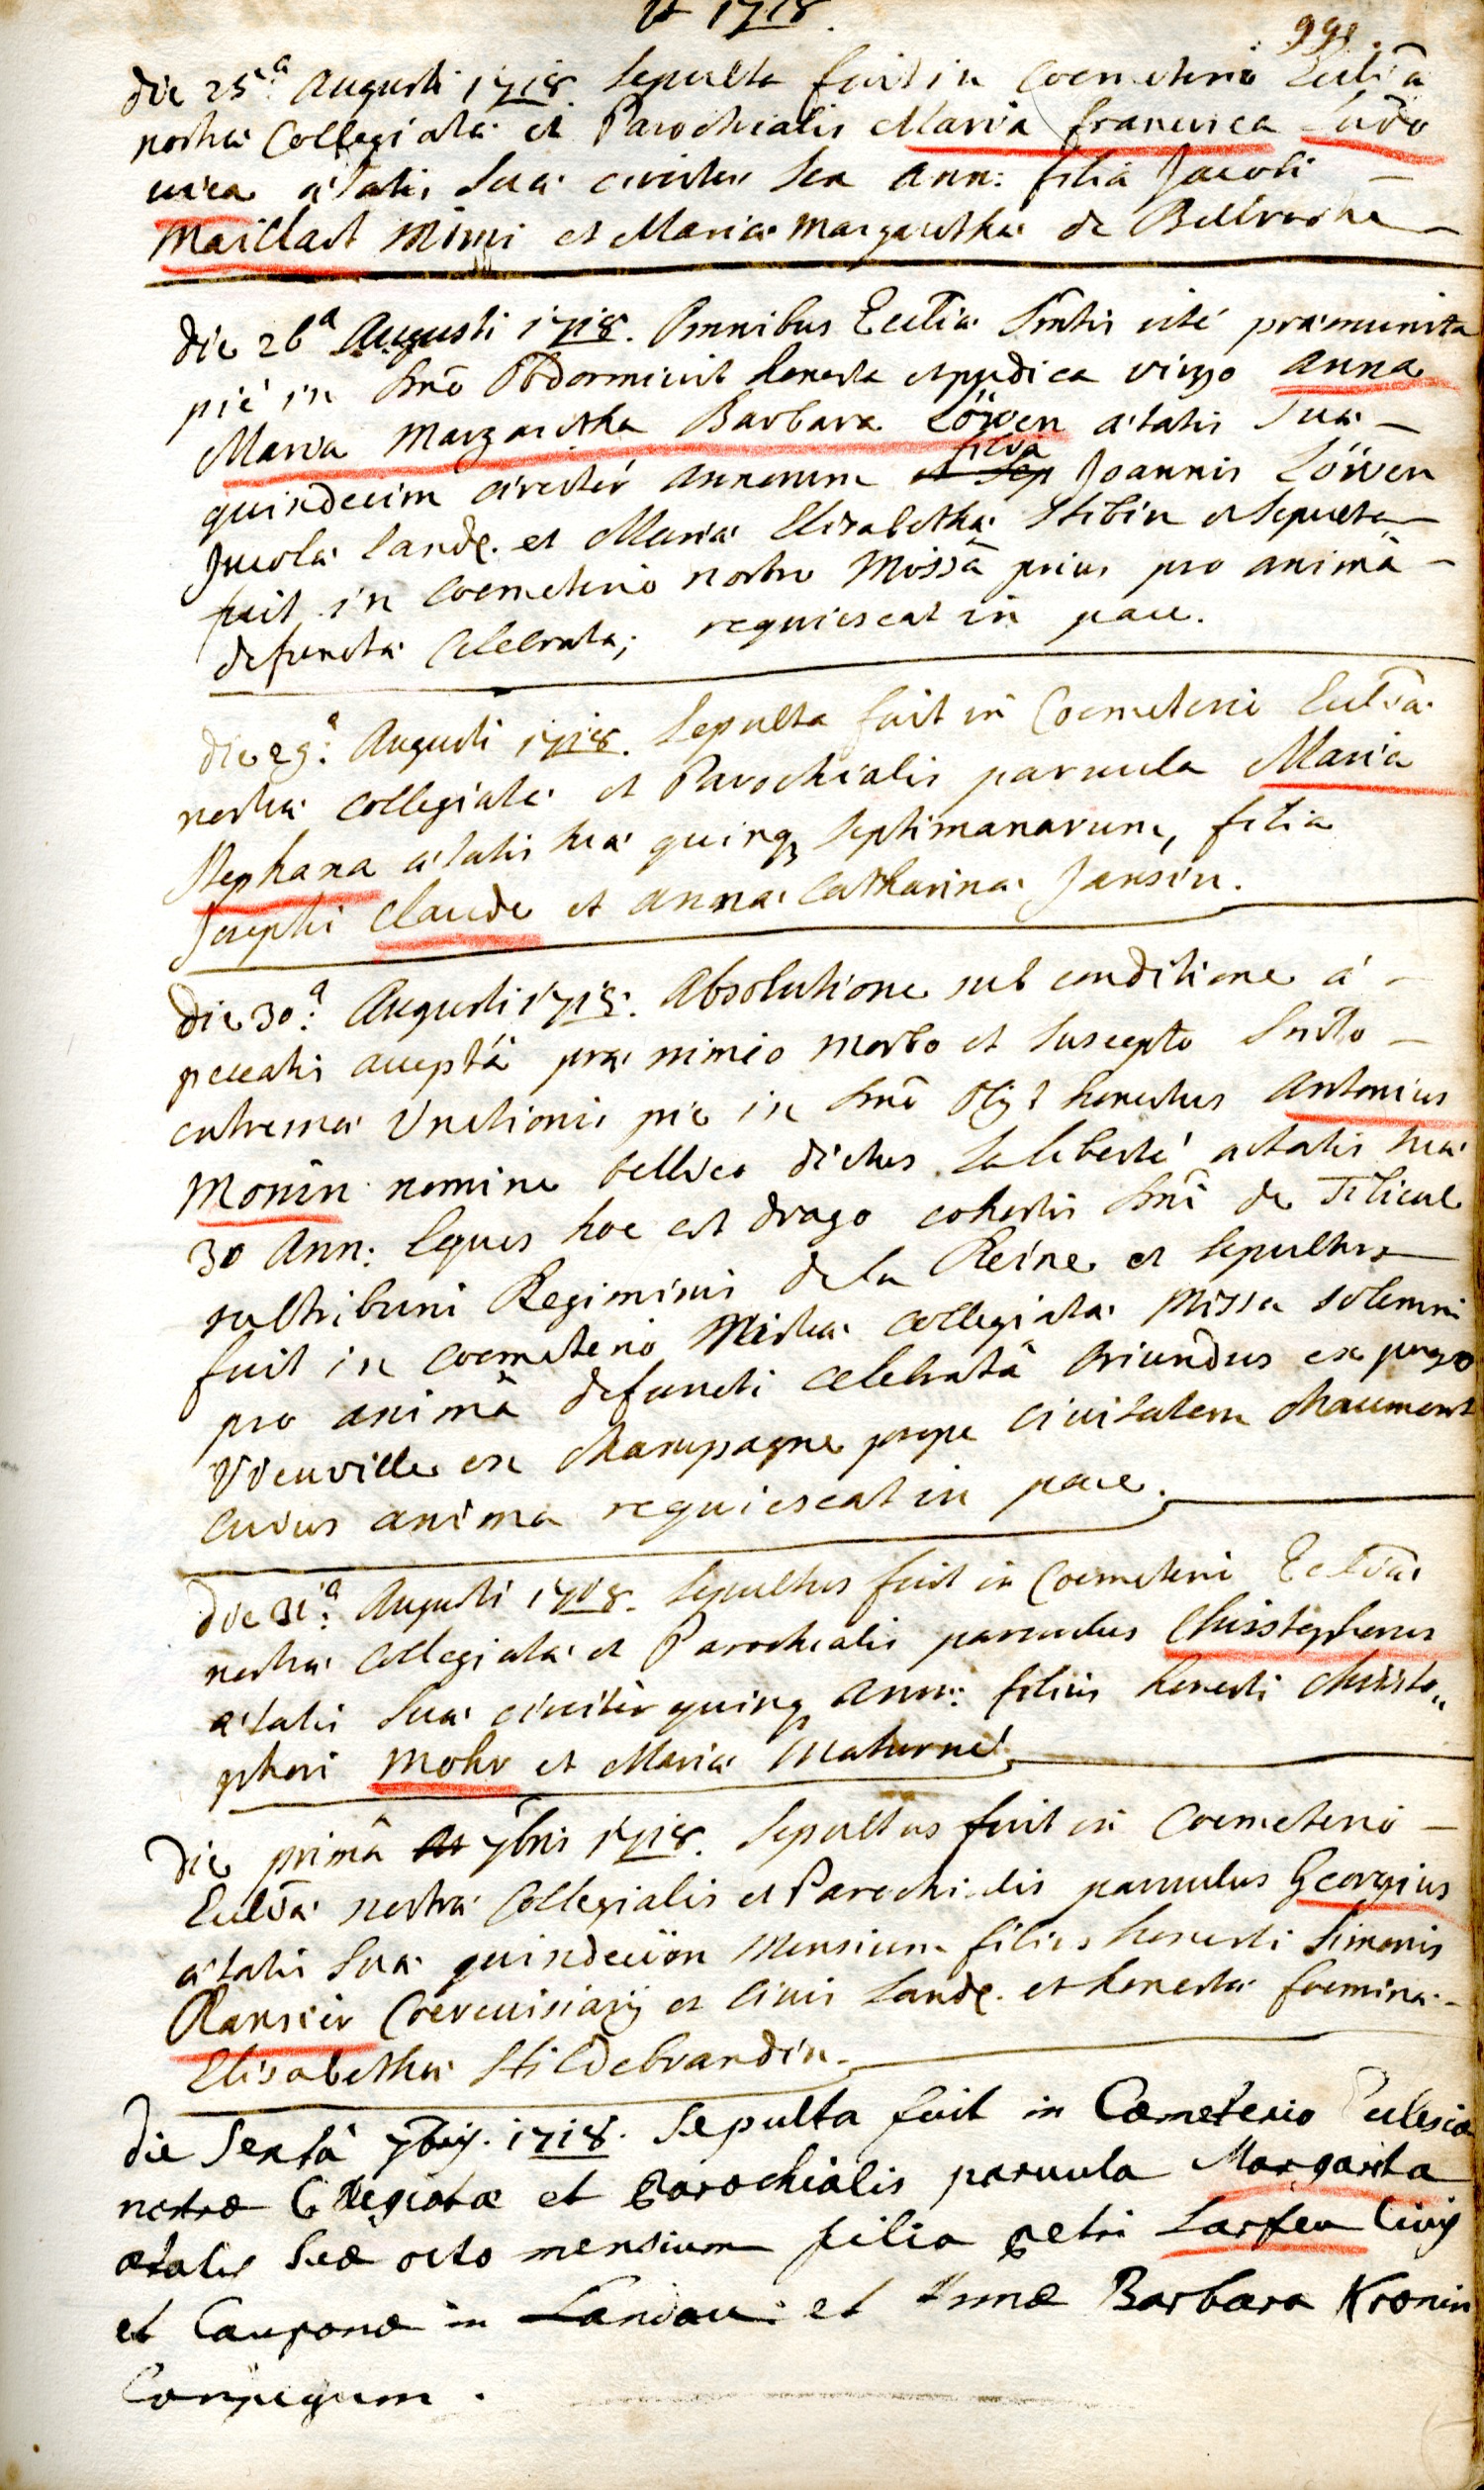 & 1718.
999.
die 25.a Augusti 1718. Sepulta fuit in Coemeterio Eccliæ
nostræ Collegiatæ et Parochialis Maria Francisca Ludo
vica ætatis Suæ circiter sex Ann: filia Jacobi –
Maillart Mimi et Mariæ Margarethæ de Bellroche –
die 26a Augusti 1718. Omnibus Eccliæ Smtis ritè præmunita
piè in Dnō Obdormivit honesta et pudica virgo Anna
Maria Margaretha Barbara Löwen ætatis Suæ –
quindecim circitér annorum et Sep filia Joannis Löwen
Incolæ Landv. et Mariæ Elisabethæ Stibin et Sepulta –
fuit in Coemeterio nostro Missâ prius pro animâ –
defunctæ Celebrata; requiescat in pace.
die 29.a Augusti 1718. Sepulta fuit in Coemeterio Eccliæ
nostræ Collegiatæ et Parochialis parvula Maria
Stephana ætatis suæ quinq septimanarum, filia
Josephi Claude et Annæ Catharinæ Jansin.
die 30.a Augusti 1718. Absolutione sub conditione à –
peccatis acceptâ præ nimio morbo et suscepto Smto –
extremæ Unctionis pie in Dnō Obijt honestus Antonius
Monin nomine bellico dictus La liberté ætatis suæ
30 Ann: Eques hoc est drago cohortis Dni de
subtribuni Regiminis de la Reine et Sepultus
fuit in Coemeterio Nostræ Collegiatæ Missa solemni
pro animâ defuncti celebratâ Oriundus ex pago
Vieuville en Champagne prope Civitatem Chaumont
cuius anima requiescat in pace.
die 31.a Augusti 1718. Sepultus fuit in Coemeterio Eccliæ
nostræ Collegiatæ et Parochialis parvulus Christophorus
ætatis Suæ circitèr quinq Ann: filius honesti Christo„
phori Mohr et Mariæ Maturné
Die primâ 7bris 1718. Sepultus fuit in Coemeterio –
Eccliæ nostræ Collegialis et Parochialis parvulus Georgius
ætatis Suæ quindecim Mensium filius honesti Simonis
Ransier Cerevisiarij et Civis Landv. et honestæ foeminæ –
Elisabethæ Hildebrandin.
die Sextâ 7bris. 1718. Sepulta fuit in Coemeterio Eclesiæ
nostræ Collegiatæ et Parochialis parvula Margarita
ætatis Suæ octo mensium filia petri Larfeu Civis
et Cauponæ in Landau: et Annæ Barbara Kronin
Conjugum.